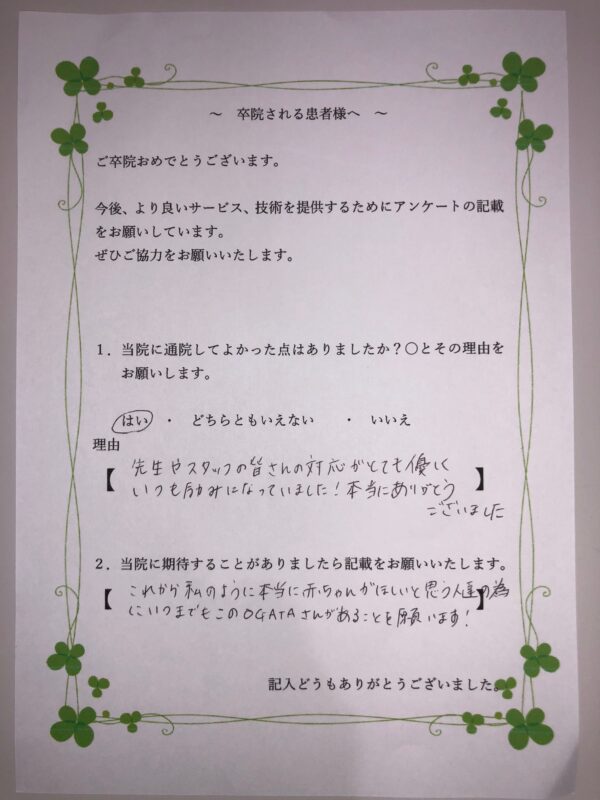 ～ 卒院される患者様へ ～
ご卒院おめでとうございます。
今後、より良いサービス、技術を提供するためにアンケートの記載
をお願いしています。
ぜひご協力をお願いいたします。
1．当院に通院してよかった点はありましたか？〇とその理由を
お願いします。
はい ・ どちらともいえない ・ いいえ
理由
【 先生やスタッフの皆さんの対応がとても優しく
いつも励みになっていました！本当にありがとう 】
ございました
2．当院に期待することがありましたら記載をお願いいたします。
【 これから私のように本当に赤ちゃんがほしいと思う人達の為 】
にいつまでもこのOGATAさんがあることを願います！
記入どうもありがとうございました。